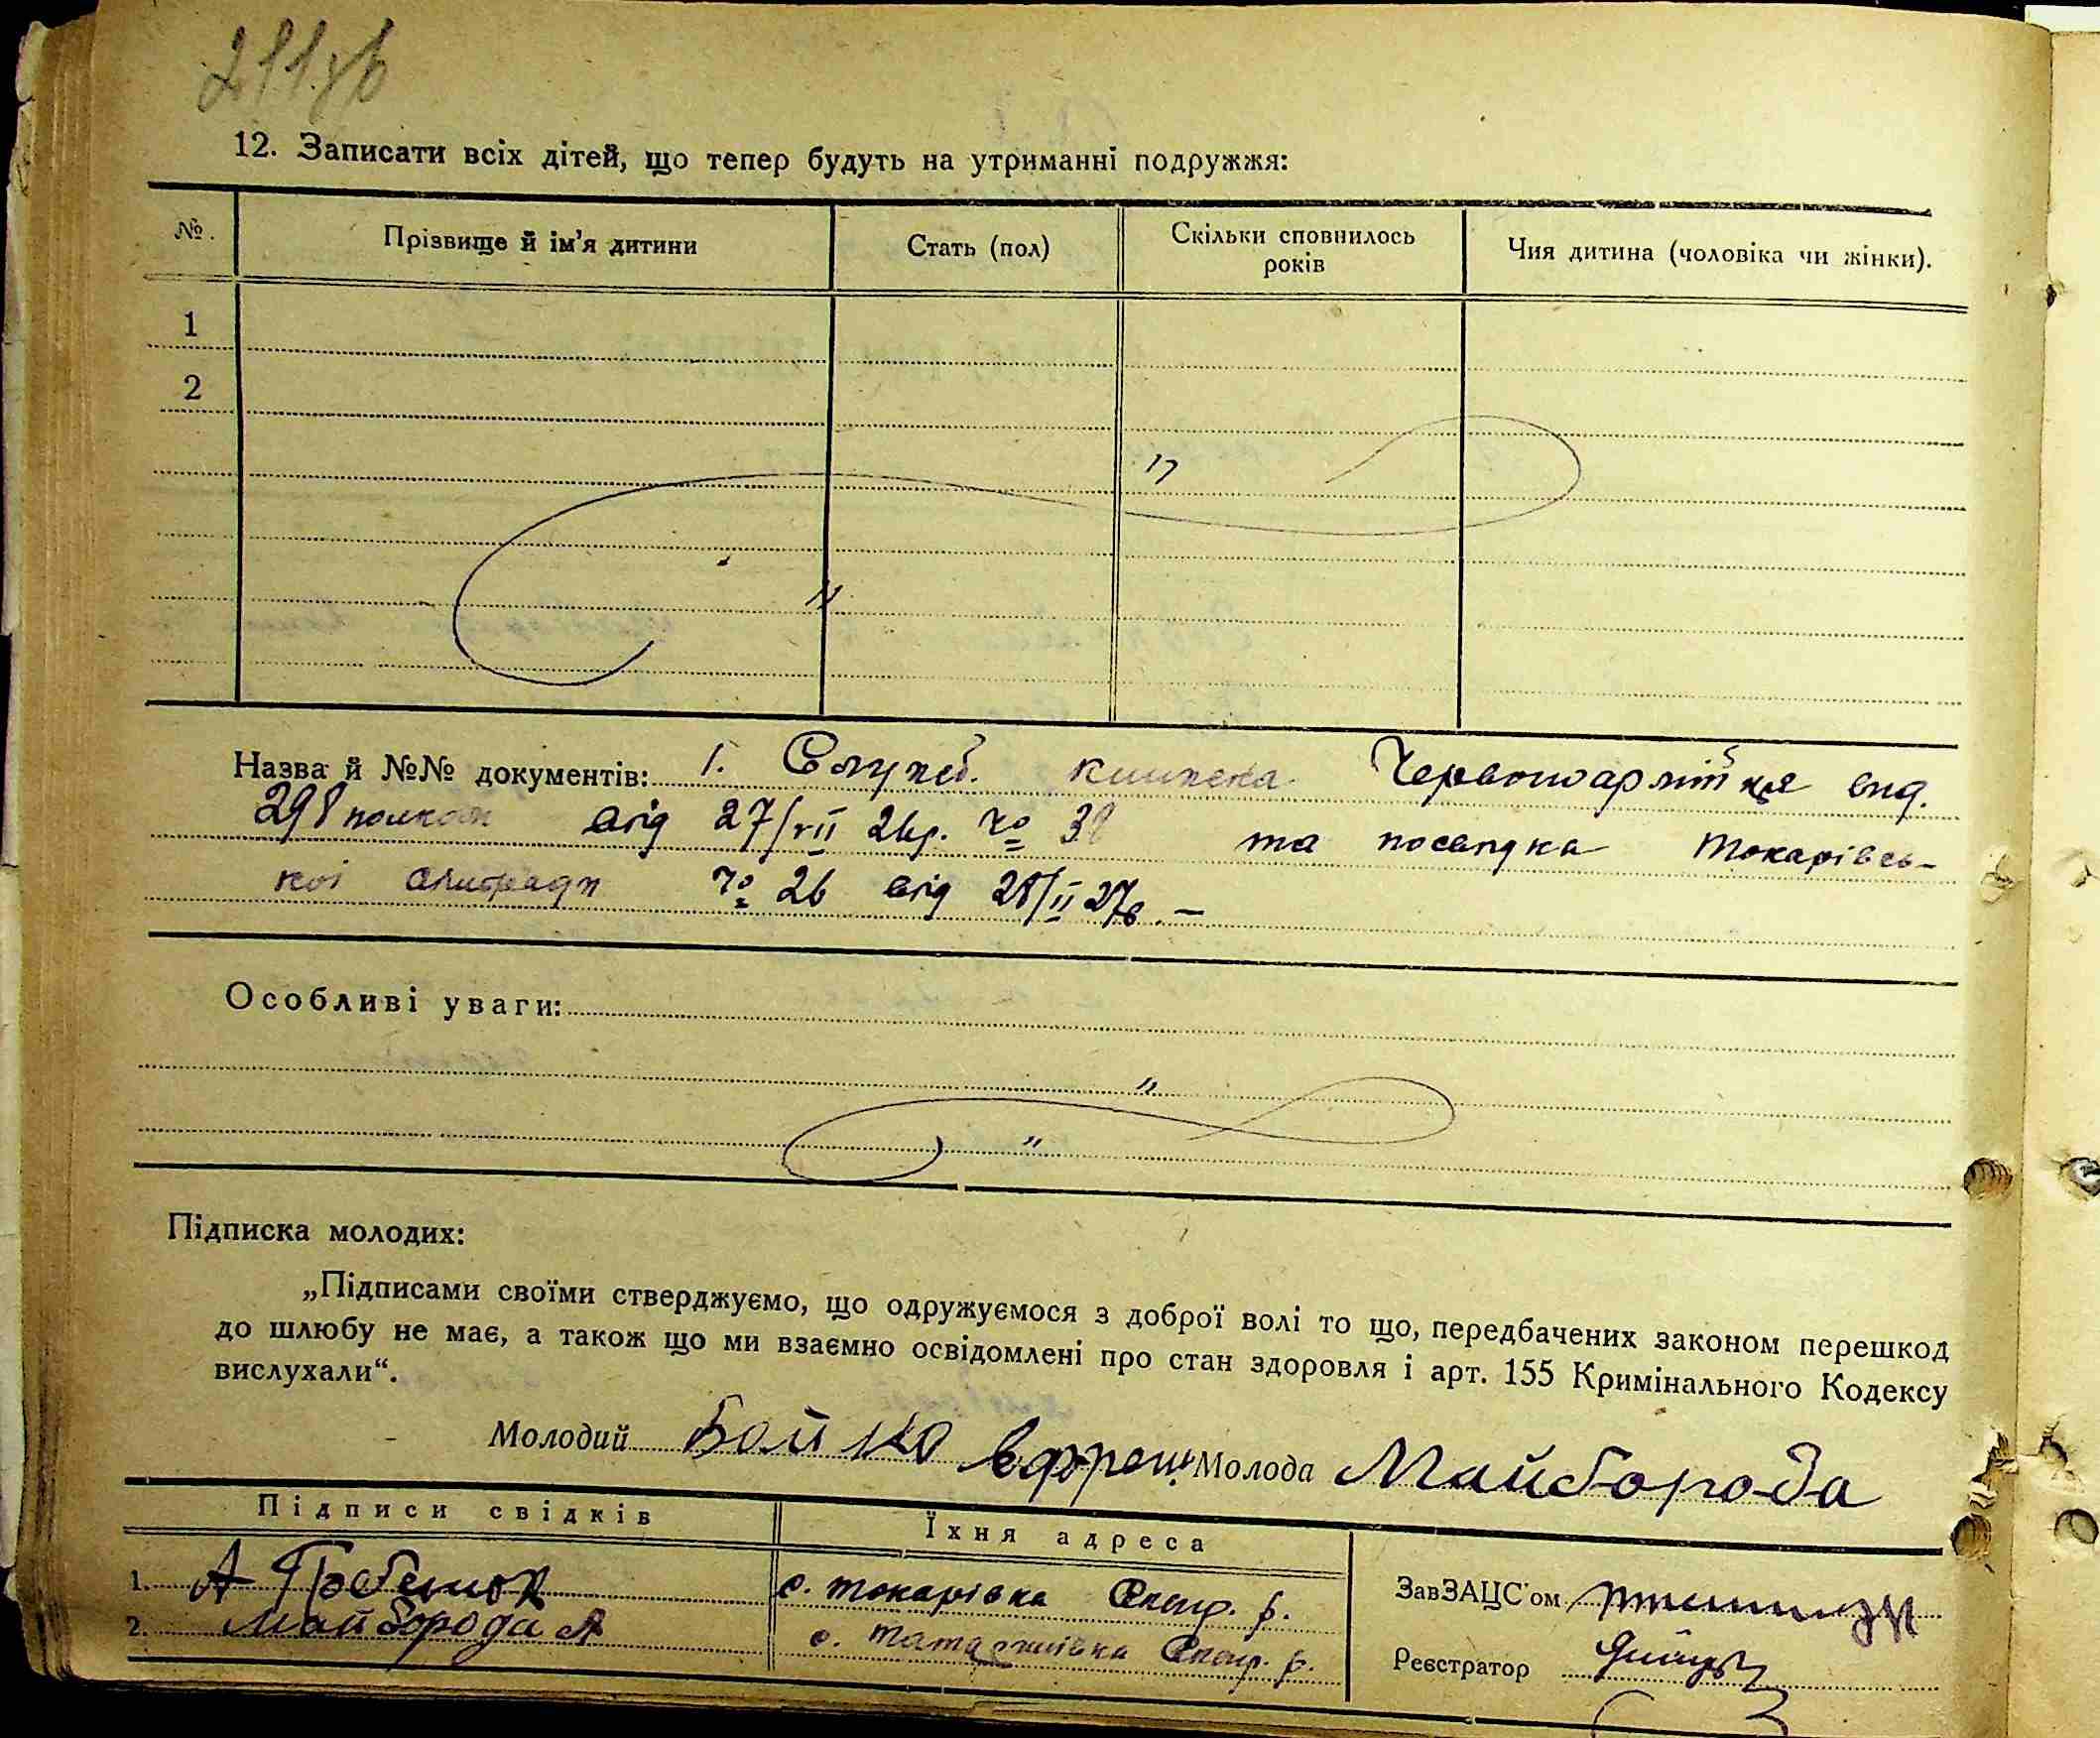 211 зв
12. Записати всіх дітей, що тепер будуть на утриманні подружжя:
№. Прізвище й ім'я дитини Стать (пол) Скільки сповнилось років Чия дитина (чоловіка чи жінки).
1
2
"
"
Назва й №№ документів: 1. Служб. книжка Червоноармійця вид.
298 полком від 27/VII 26р. № 38 та посвідка Токарівсь-
кої сільради № 26 від 28/II 27р. —
Особливі уваги:
"
"
Підписка молодих:
„Підписами своїми стверджуємо, що одружуємося з доброї волі то що, передбачених законом перешкод
до шлюбу не має, а також що ми взаємно освідомлені про стан здоровля і арт. 155 Кримінального Кодексу
вислухали“.
Молодий Бойко Ефрем Молода Майборода
Підписи свідків Їхня адреса
1. А Гребенюк с. Токарівка р.
2. Майборода А с. р.
ЗавЗАЦС'ом
Реєстратор